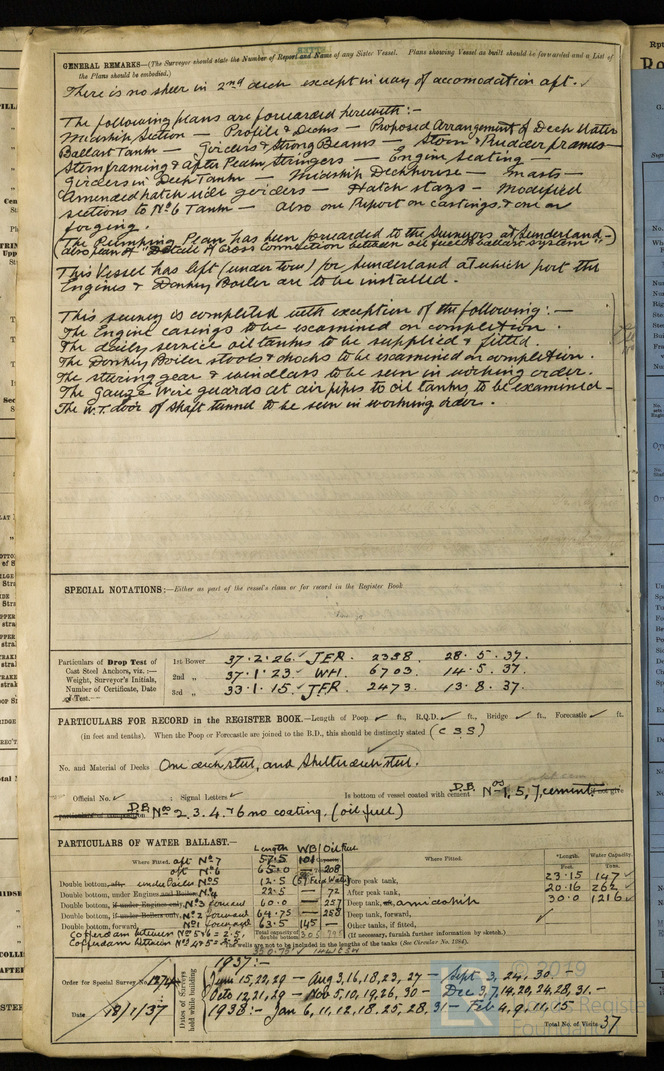 GENERAL REMARKS—(The Surveyor should state the Number of Report and Name of any Sister Vessel. Plans showing Vessel as built should be forwarded and a List of
the Plans should be embodied.)
There is no sheer in 2nd deck except in way of accomodation aft.
The following plans are forwarded herewith:-
Midship Section — Profile & Decks — Proposed Arrangement of Deck Water
Ballast Tanks — Girders & Strong Beams — Stern & Rudder frames —
Stern framing & After Peak, stringers — Engine Seating —
Girders in Deck Tanks — Midship Deckhouse — Masts —
Amended hatch side girders — Hatch stays — Modified
sections to No 6 Tank — Also one Report on castings & one on
forging.
(The Pumping Plan has been forwarded to the Surveyors at Sunderland—
also plan of Detail of Cross Connection between oil fuel & ballast system "-)
This Vessel has left (under tow) for Sunderland at which port the
Engines & Donkey Boiler are to be installed.
This survey is completed with exception of the following:—
The Engine casings to be examined on completion.
The daily service oil tanks to be supplied & fitted.
The Donkey Boiler stools & chocks to be examined on completion.
The steering gear & windlass to be seen in working order.
The Gauze Wire guards at air pipes to oil tanks, to be examined—
The W.T. door of shaft tunnel to be seen in working order.
SPECIAL NOTATIONS:—Either as part of the vessel's class or for record in the Register Book
Particulars of Drop Test of
Cast Steel Anchors, viz.:—
Weight, Surveyor's Initials,
Number of Certificate, Date
of Test.—
1st Bower 37.2.26. JER. 2338. 28.5.37.
2nd " 37.1.23 WH. 6703. 14.5.37.
3rd " 33.1.15 JER. 2473. 13.8.37.
PARTICULARS FOR RECORD in the REGISTER BOOK.—Length of Poop ✓ ft., R.Q.D. ✓ ft., Bridge ✓ ft., Forecastle ✓ ft.
(in feet and tenths). When the Poop or Forecastle are joined to the B.D., this should be distinctly stated (C S S)
No. and Material of Decks One deck steel, and Shelter deck steel.
Official No. ✓ ; Signal Letters ✓ Is bottom of vessel coated with cement D.B. Nos 1, 5, 7, cement
D.B. Nos 2. 3. 4. & 6 no coating. (oil fuel)
PARTICULARS OF WATER BALLAST.—
Length WB Oil Fuel
Where Fitted. Where Fitted. *Length. Water Capacity.
Feet. Tons.
aft No 7 57.5 101
aft No 6 65.0 — 208
Double bottom, under Boiler No 5 12.5 (59 Feed Water)
Double bottom, under Engines No 4 22.5 — 72
Double bottom, No 3 forward 60.0 — 257
Double bottom, No 2 forward 64.75 — 258
Double bottom, forward, No 1 63.5 145 —
Fore peak tank, 23.15 147 ✓
After peak tank, 20.16 262 ✓
Deep tank, amidship 30.0 1216 ✓
Deep tank, forward, ✓
Other tanks, if fitted,
(If necessary, furnish further information by sketch.)
Total capacity of double bottom 305 795
Cofferdam between No 5 & 6 = 2.5,
Cofferdam between No 4 & 5 = 2.5
The wells are not to be included in the lengths of the tanks (See Circular No. 1084).
Order for Special Survey No. 1274
Date 18/1/37
Dates of Surveys held while building
1937:—
June 15, 22, 29 — Aug 3, 16, 18, 23, 27 — Sept 3, 24, 30. —
Octo 12, 21, 29 — Nov 5, 10, 19, 26, 30 — Dec 3, 7, 14, 20, 24, 28, 31. —
1938:— Jan 6, 11, 12, 18, 25, 28, 31 — Feb 4, 9, 11, 15
Total No. of Visits 37
2019
Lloyd's Register
Foundation